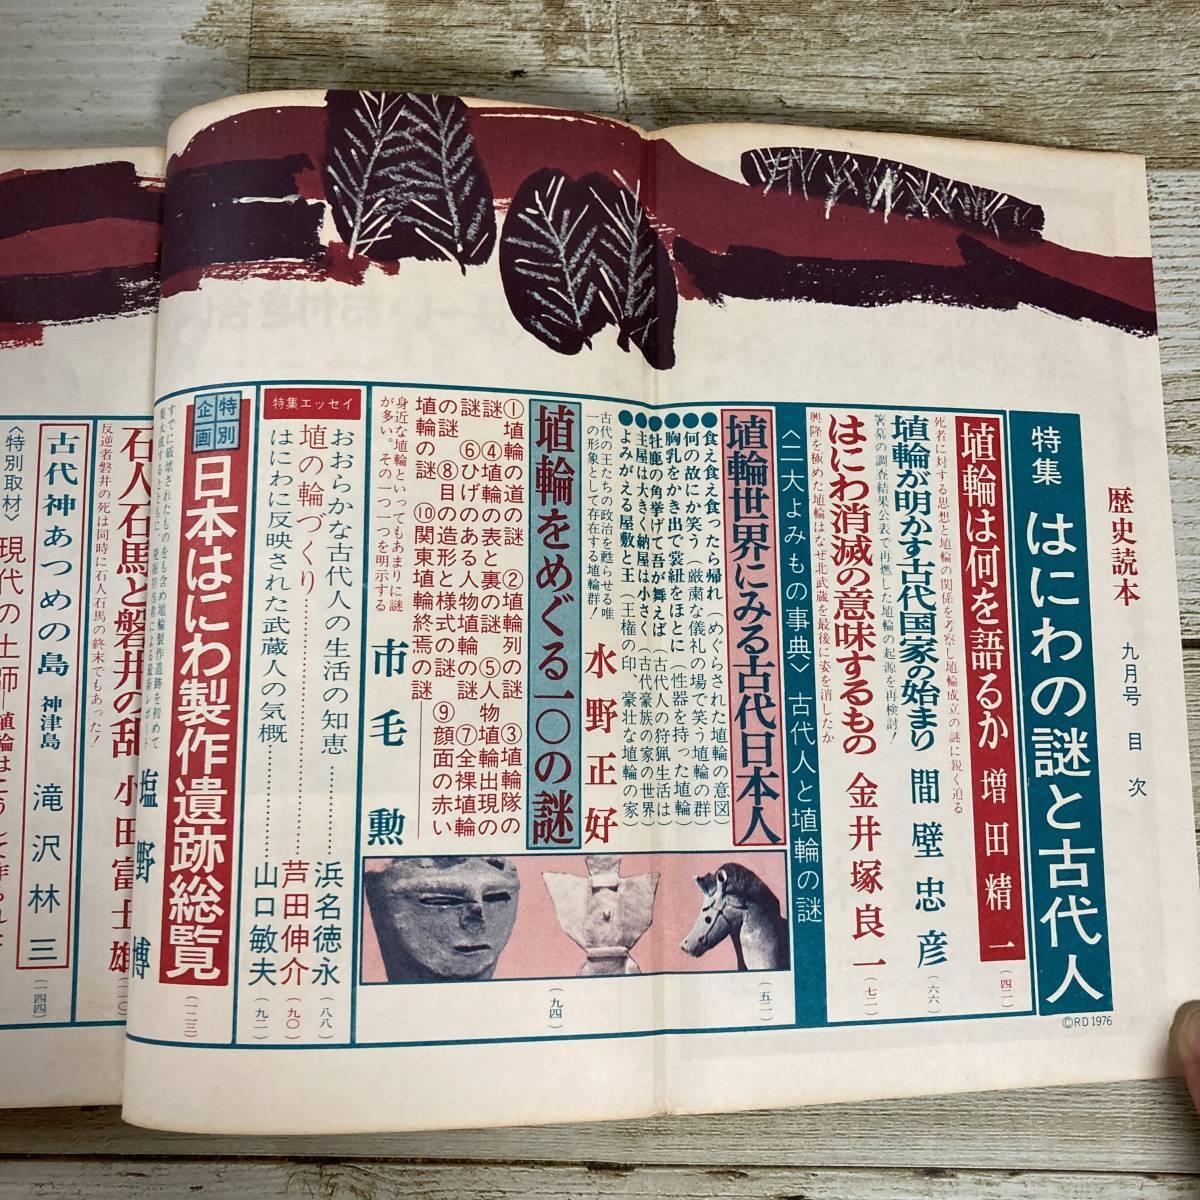 歴史読本 九月号 目次
特集 はにわの謎と古代人
©RD 1976
埴輪は何を語るか 増田精一 (四二)
死者に対する思想と埴輪の関係を考察し埴輪成立の謎に鋭く迫る
埴輪が明かす古代国家の始まり 間壁忠彦 (六六)
箸墓の調査結果公表で再燃した埴輪の起源を再検討!
はにわ消滅の意味するもの 金井塚良一 (七二)
興隆を極めた埴輪はなぜ北武蔵を最後に姿を消したか
〈二大よみもの事典〉古代人と埴輪の謎
埴輪世界にみる古代日本人 水野正好 (五二)
●食え食え食ったら帰れ(めぐらされた埴輪の意図
●何の故にか笑う(厳粛な儀礼の場で笑う埴輪の群
●胸乳をかき出で裳紐をほとに(性器を持った埴輪
●牡鹿の角挙げて吾が舞えば(古代人の狩猟生活は
●主屋は大きく納屋は小さく(古代豪族の家の世界
●よみがえる屋敷と王(王権の印 豪壮な埴輪の家
古代の王たちの政治を甦らせる唯
一の形象として存在する埴輪群!
埴輪をめぐる一〇の謎 市毛勲 (九四)
①埴輪の道の謎 ②埴輪列の謎 ③埴輪隊の
謎 ④埴輪の表と裏の謎 ⑤人物埴輪出現の
謎 ⑥ひげのある人物埴輪の謎 ⑦全裸埴輪
の謎 ⑧目の造形と様式の謎 ⑨顔面の赤い
埴輪の謎 ⑩関東埴輪終焉の謎
身近な埴輪といってもあまりに謎
が多い。その一つ一つを明示する
特集エッセイ
おおらかな古代人の生活の知恵………浜名徳永 (八八)
埴の輪づくり………芦田伸介 (九〇)
はにわに反映された武蔵人の気概………山口敏夫 (九二)
特別企画
日本はにわ製作遺跡総覧 塩野博 (一二三)
すでに破壊されたものをも含め埴輪製作遺跡を初めて
石人石馬と磐井の乱 小田富士雄
反逆者磐井の死は同時に石人石馬の終末でもあった!
古代神あつめの島 神津島 滝沢林三 (一四四)
〈特別取材〉現代の土師